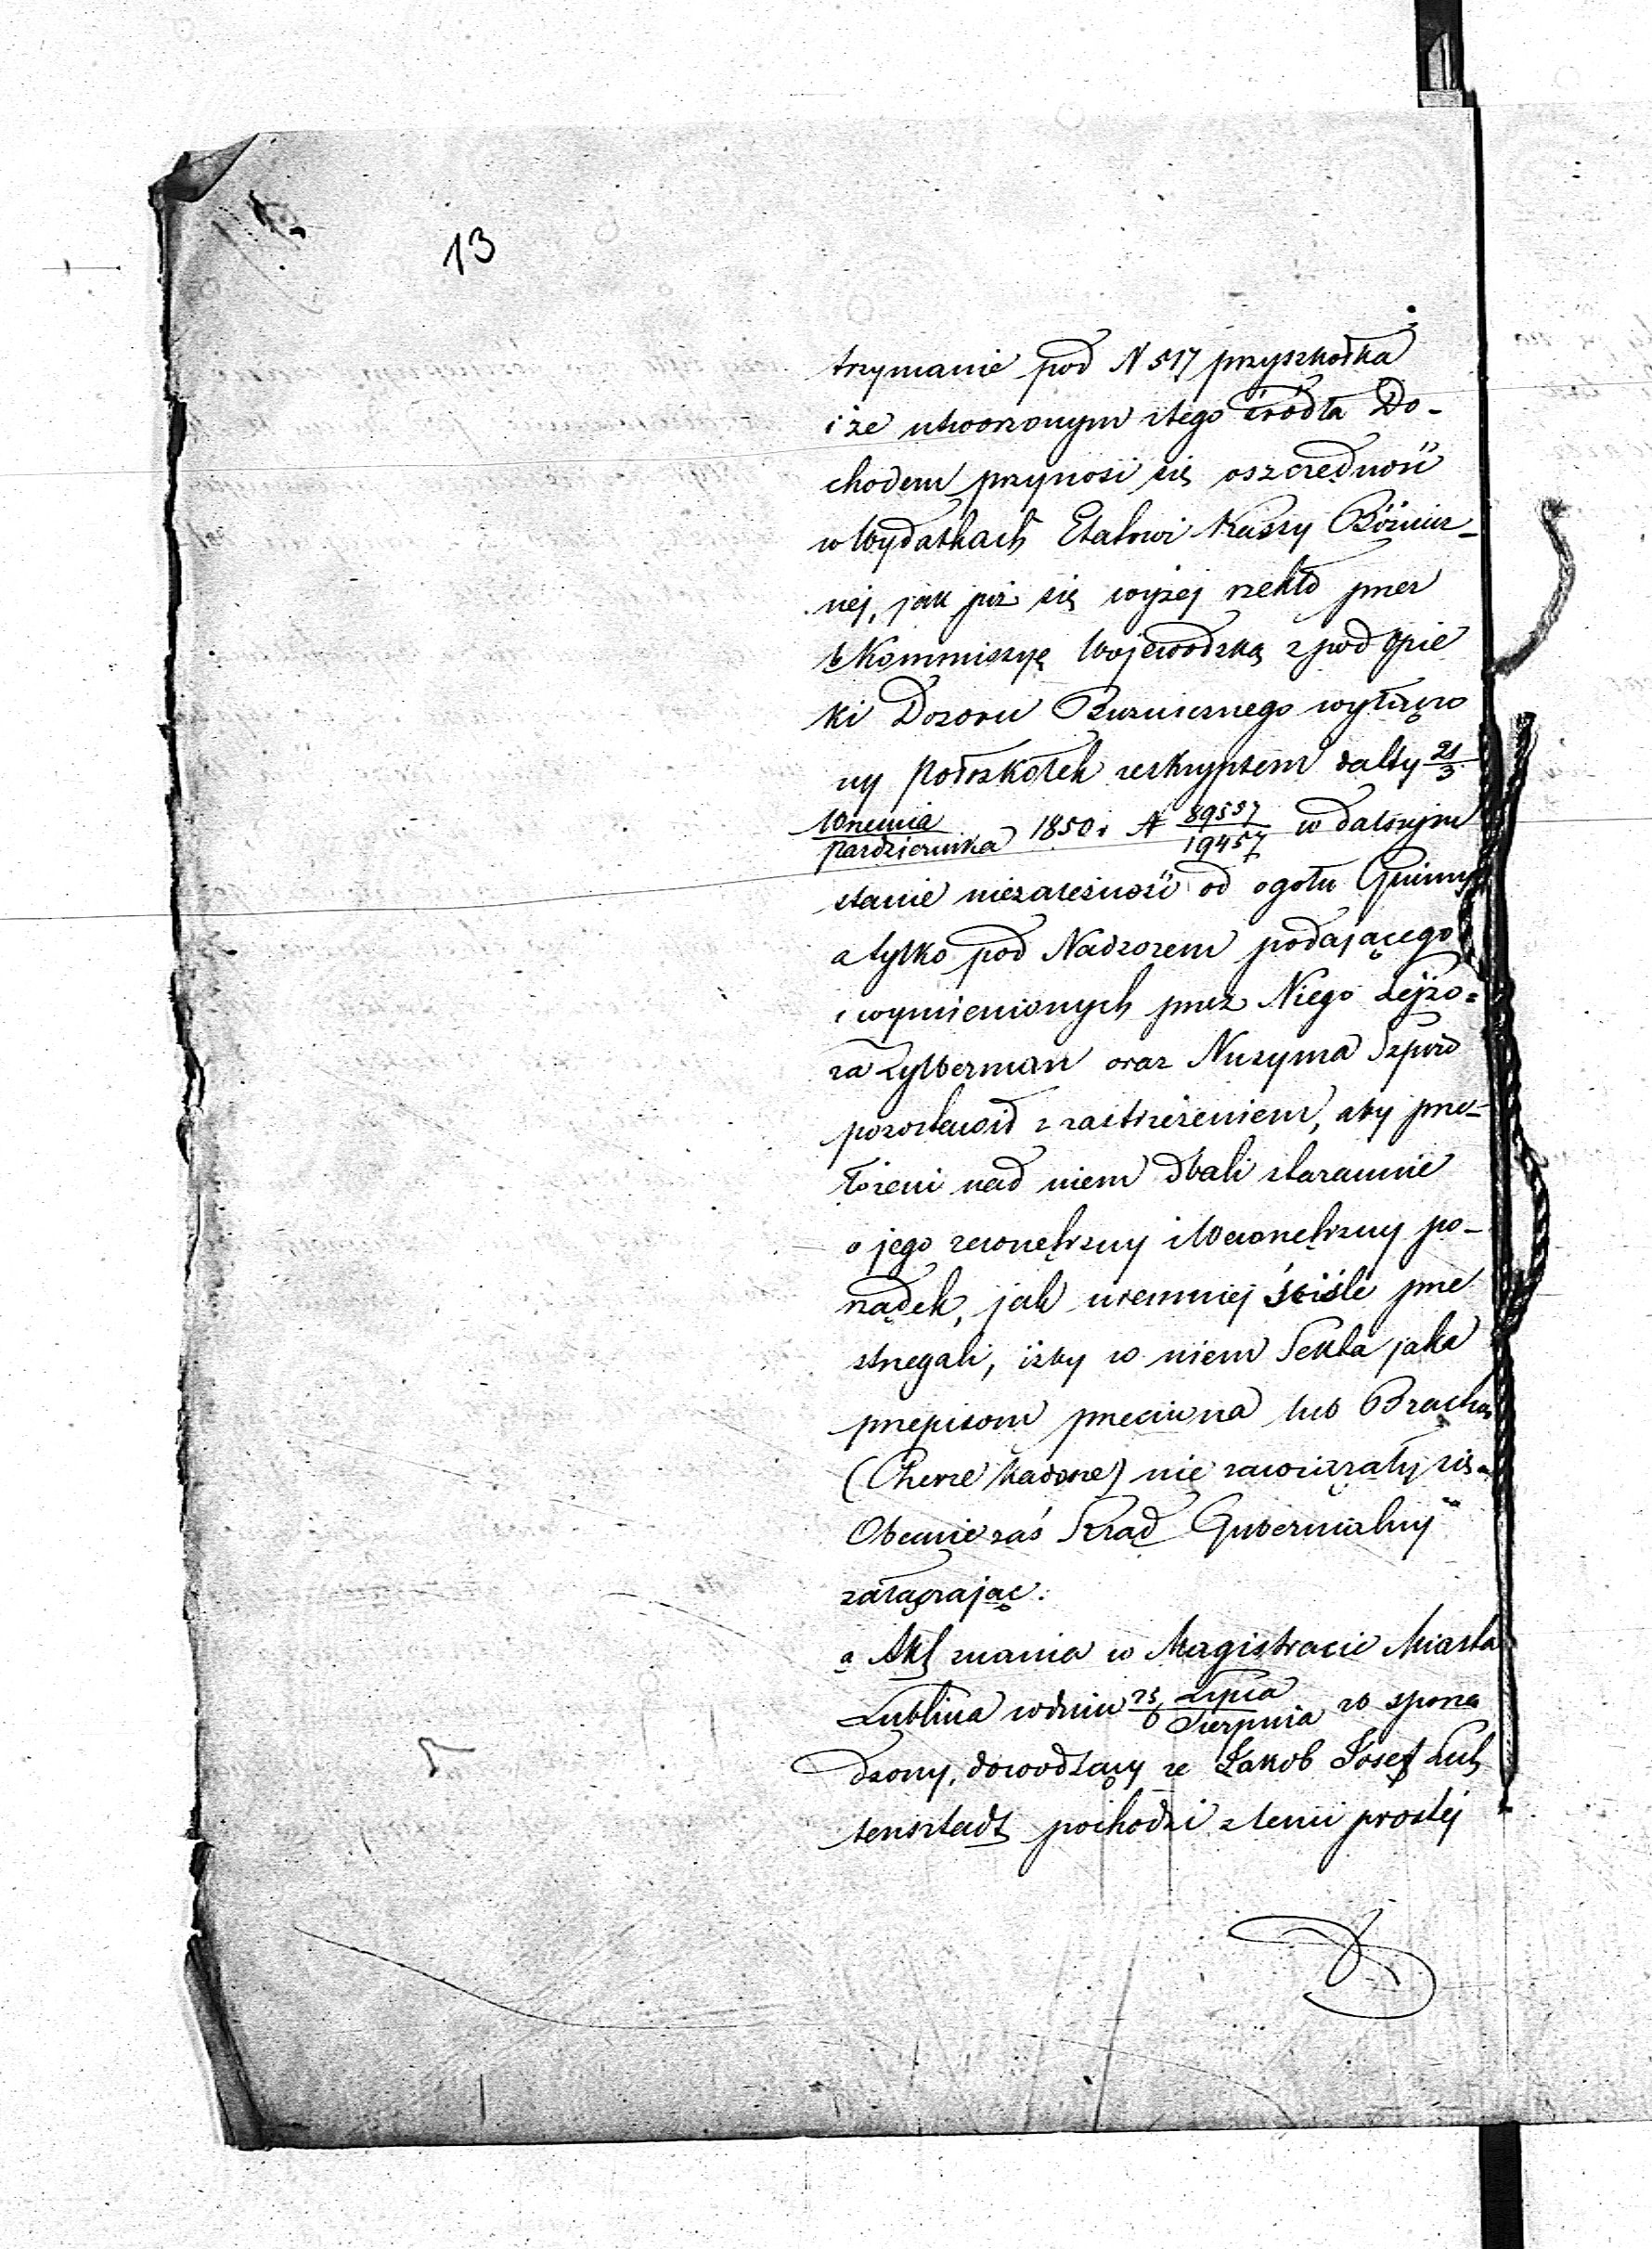 13
trzymanie pod N 517 przyszkołka
i że utworzonym z tego źródła Do-
chodem przynosi się oszczędność
w Wydatkach Etatowi Kassy Bóżnicz-
nej, jak już się wyżej rzekło przez
b Kommissyę Wojewodzką z pod Opie
ki Dozoru Buznicznego wyłączo
ny Podszkołek reskryptem datty 21/3
Wrzesnia/Pazdziernika 1850 r N 89537/19457 w dalszym
stanie niezależności od ogołu Gminy
a tylko pod Nadzorem podającego
i wymienionych przez Niego Lejzo=
ra Zylberman oraz Nuzyma Szpiro
pozostawił z zastrzeżeniem, aby prze-
łożeni nad niem dbali starannie
o jego zewnętrzny i Wewnętrzny po-
rządek, jak niemniej ściśle prze
strzegali, iżby w niem Sekta jaka
przepisom przeciwna lub Bractwa
(Cherse Kadosze) nie zawiązały się.
Obecnie zaś Rząd Gubernialny
załączając:
a Akt znania w Magistracie Miasta
Lublina w dniu 25/6 Lipca/Sierpnia r b sporzą
dzony, dowodzący że Jakob Josef Luh
tensztadt pochodzi z linii prostej